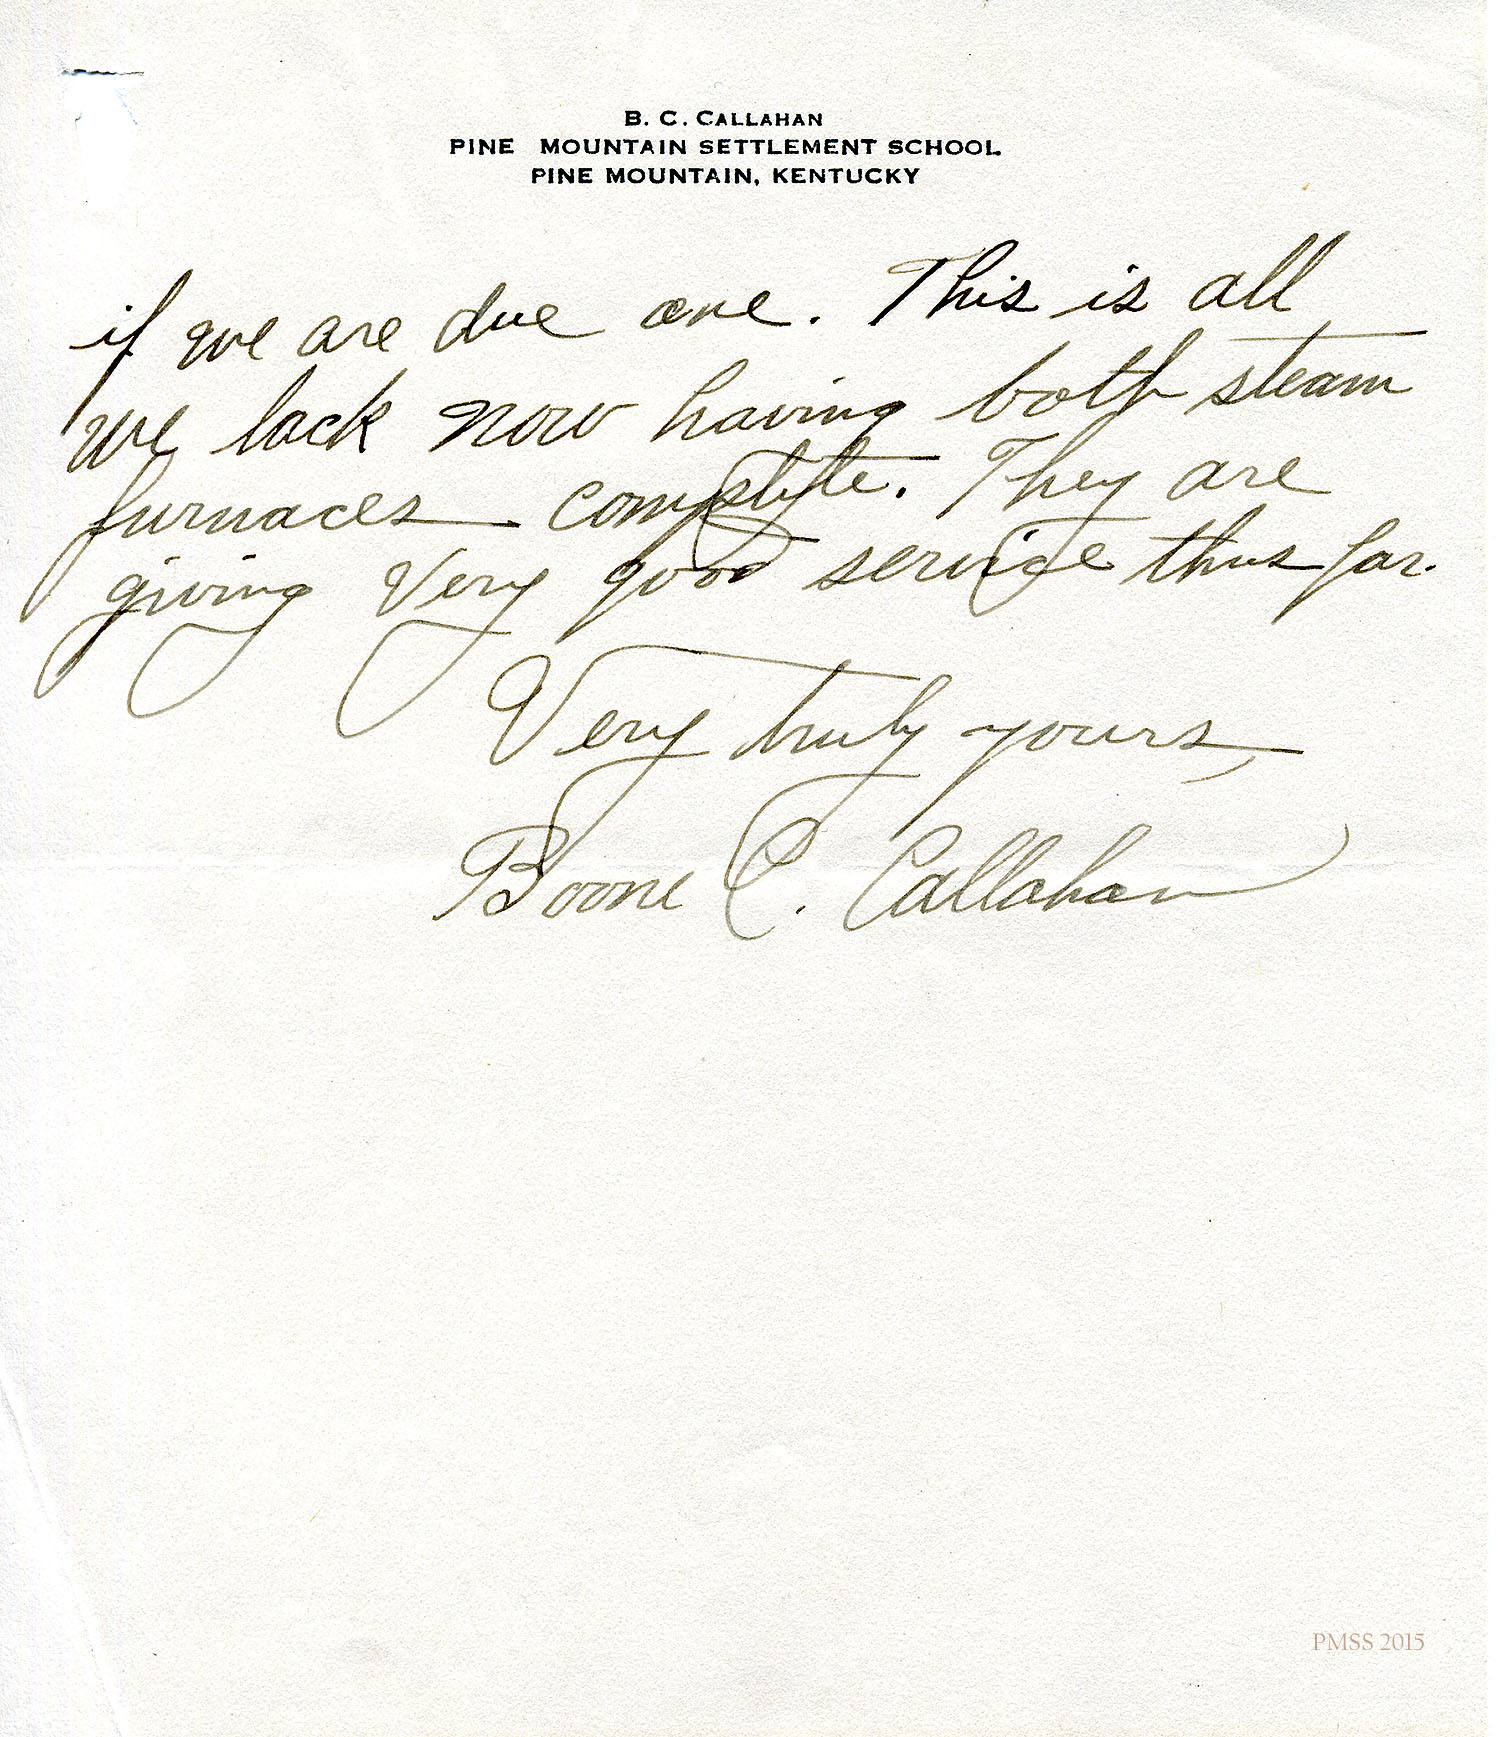 B. C. CALLAHAN
PINE MOUNTAIN SETTLEMENT SCHOOL
PINE MOUNTAIN, KENTUCKY
if we are due one. This is all
we lack now having both steam
furnaces complete. They are
giving very good service thus far.
Very truly yours,
Boone C. Callahan
PMSS 2015